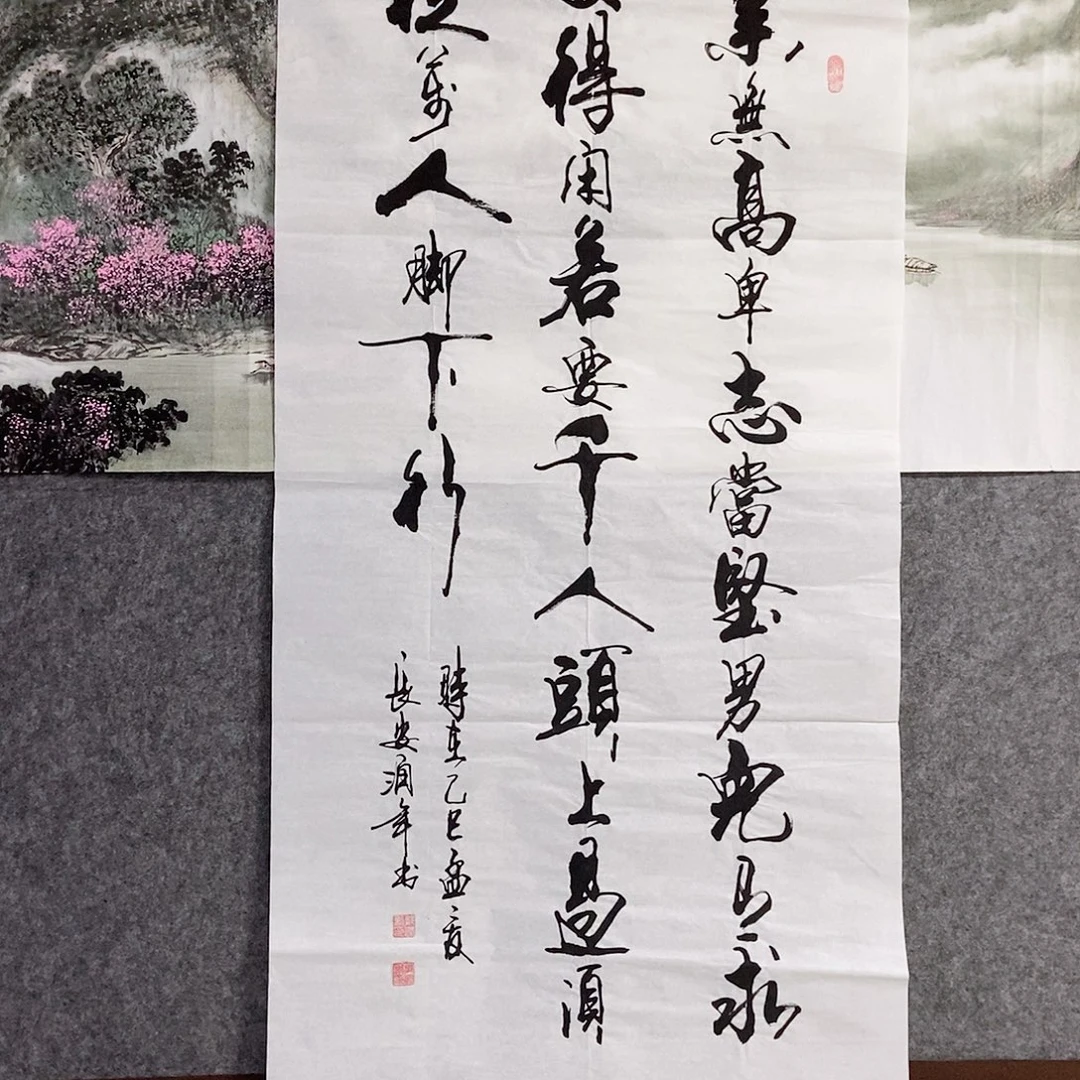 業無高卑志當堅男兒有求
得閑若要千人頭上過須
從萬人脚下行
時在乙巳孟夏
長安潤年书